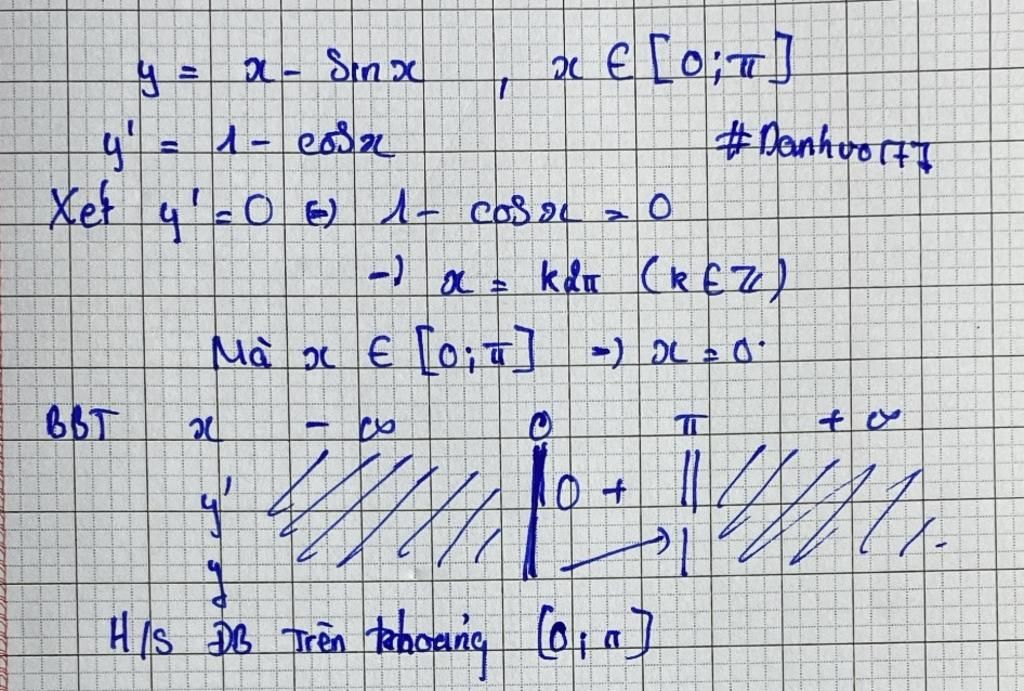 y = x - Sin x , x ∈ [0;π]
y' = 1 - cos x
#Danhvo177
Xét y' = 0 ⇔ 1 - cos x = 0
→ x = k2π (k ∈ Z)
Mà x ∈ [0;π] → x = 0.
BBT x -∞ 0 π +∞
y' 0 + ||
y
H/S ĐB Trên khoảng [0;π]